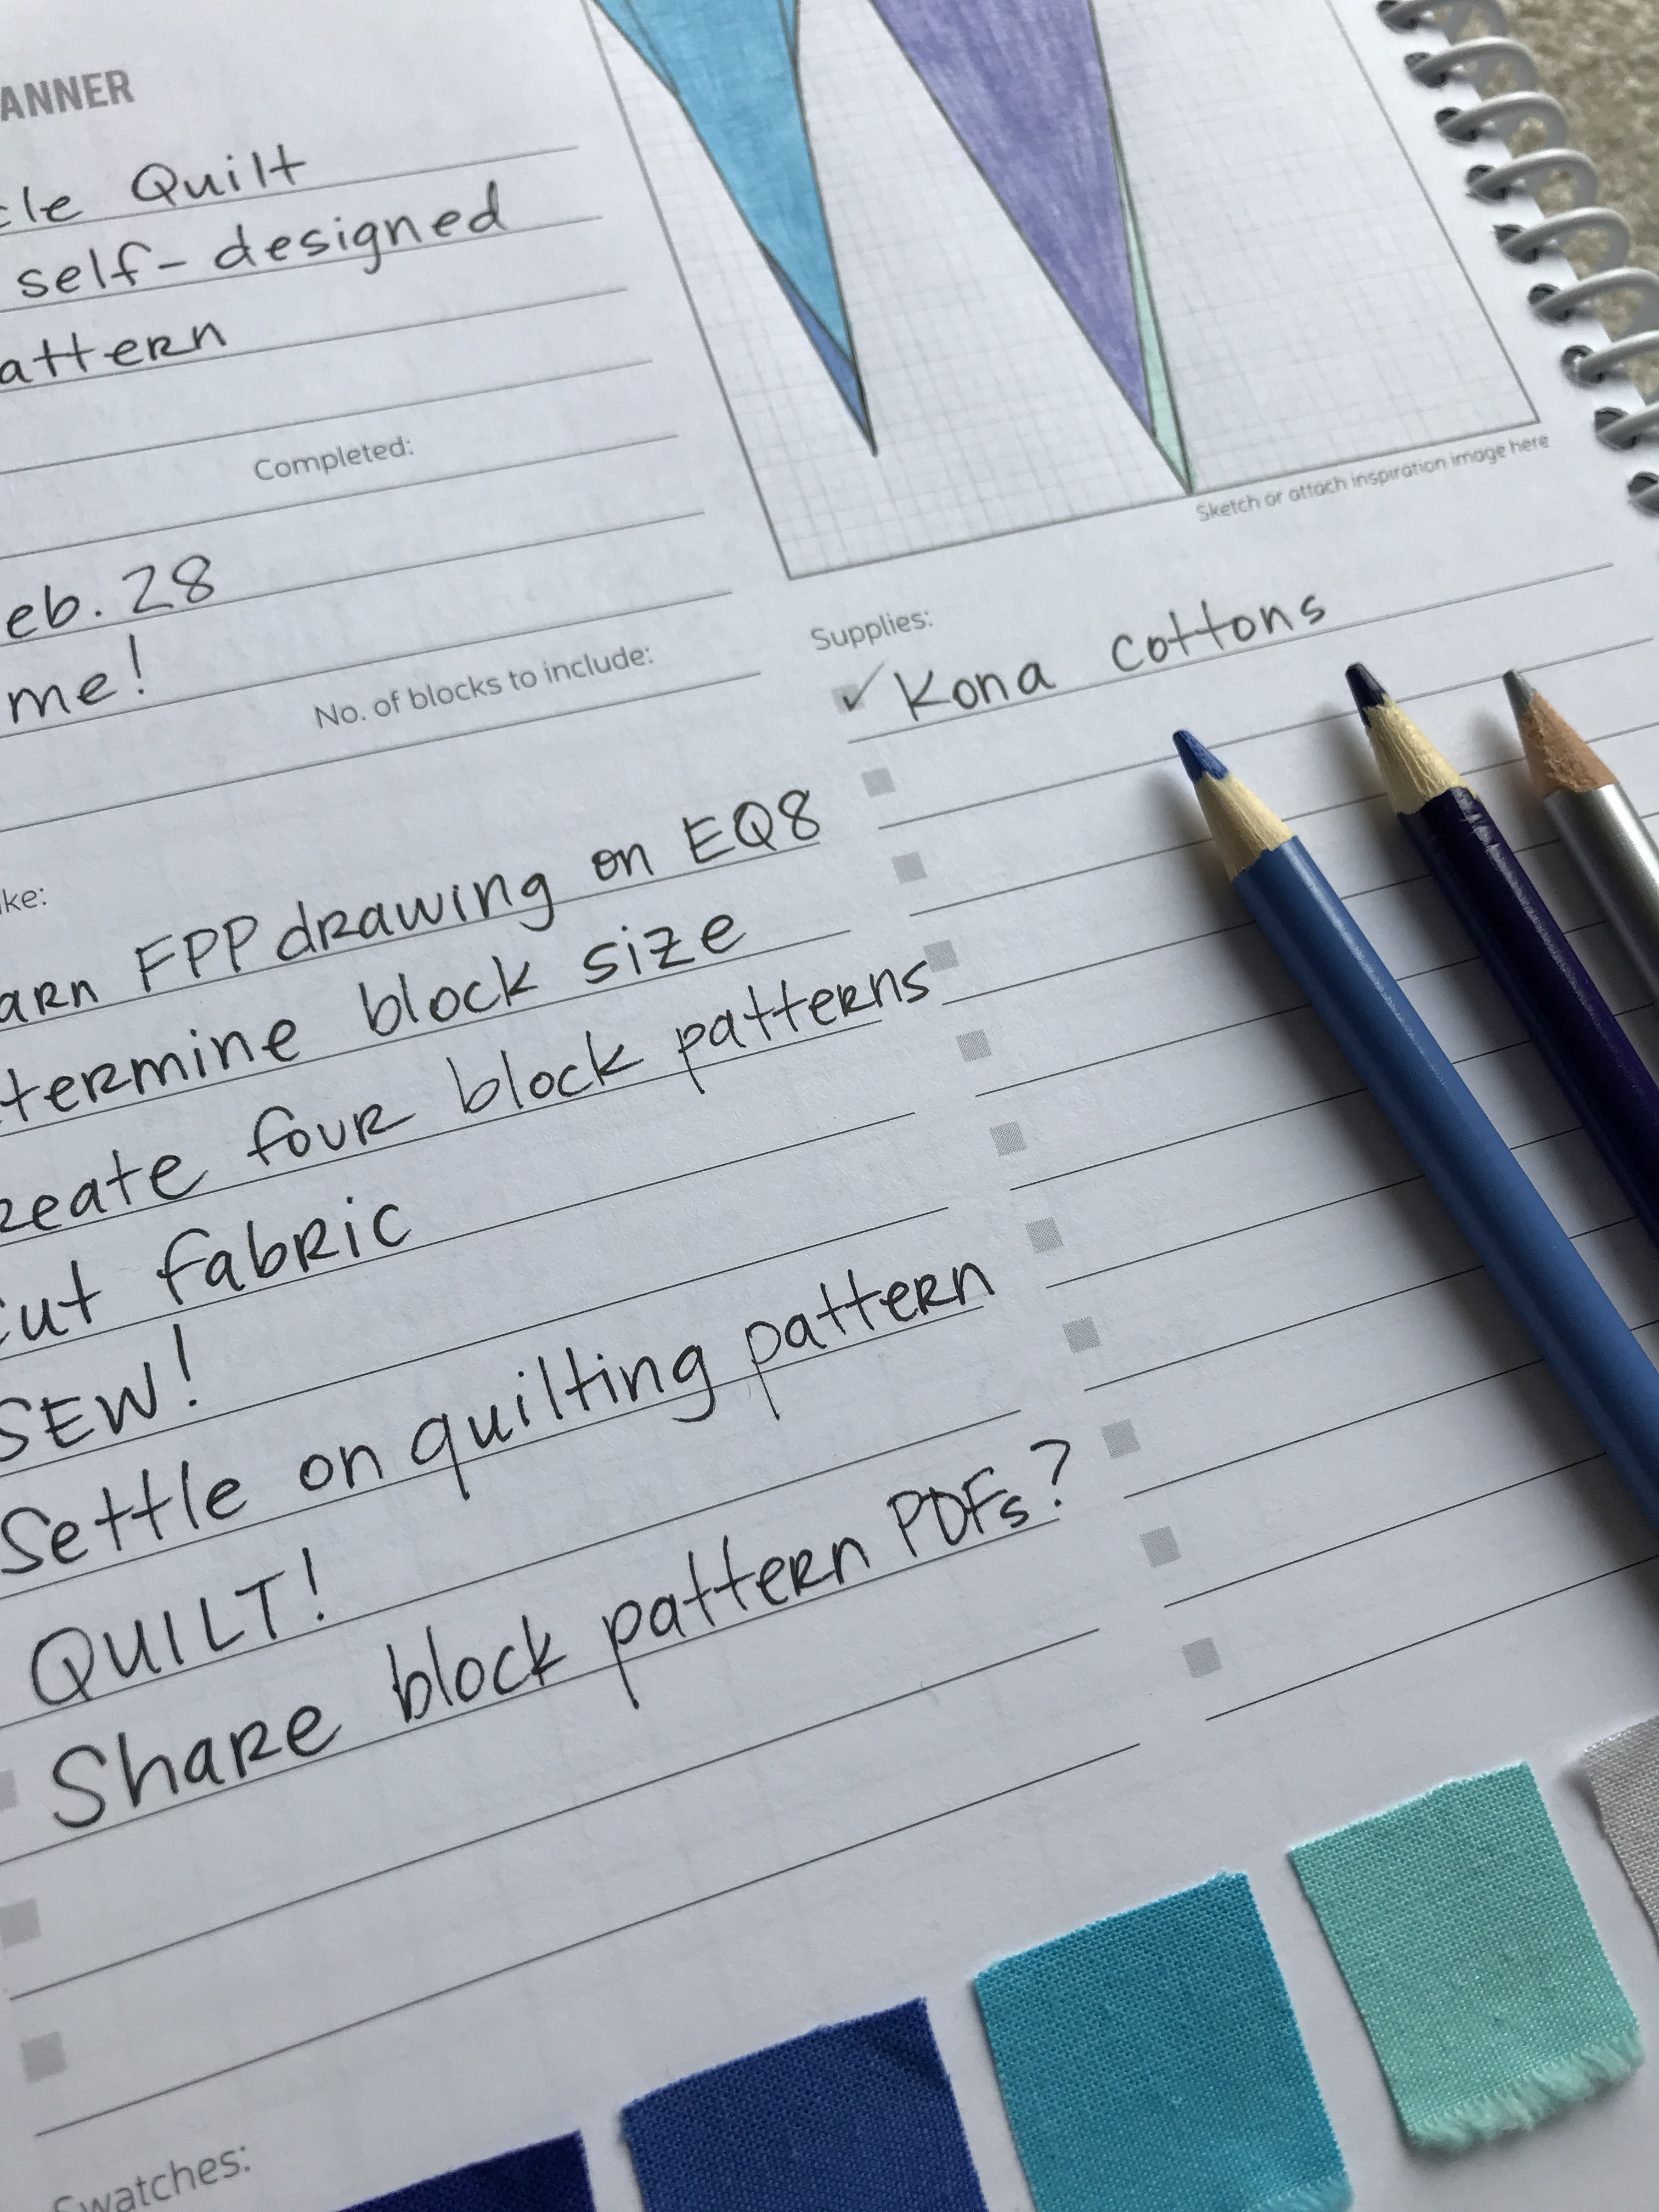 ANNER
cle Quilt
self-designed
attern
Completed:
eb. 28
me!
No. of blocks to include:
ke:
arn FPP drawing on EQ8
termine block size
reate four block patterns
cut fabric
SEW!
Settle on quilting pattern
QUILT!
Share block pattern PDFs?
Swatches:
Sketch or attach inspiration image here
Supplies:
✓ Kona cottons